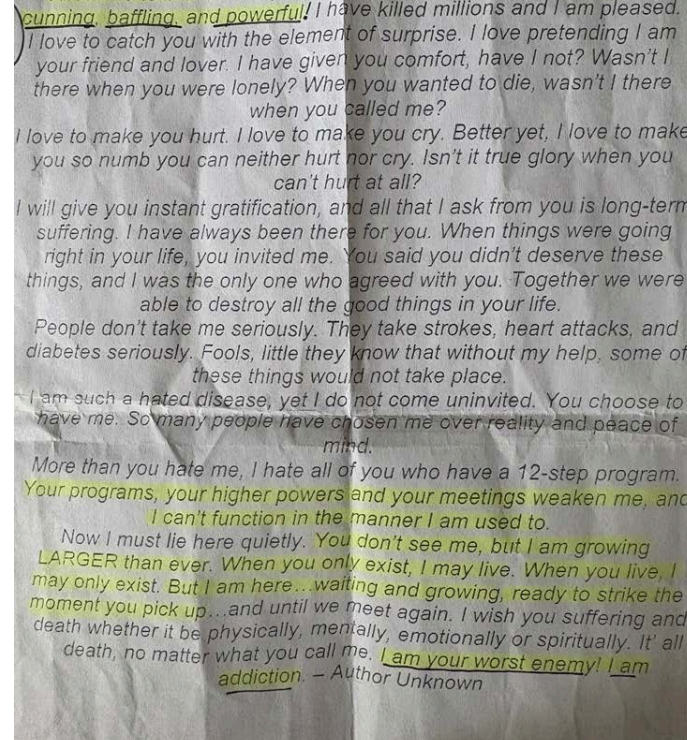 cunning, baffling, and powerful! I have killed millions and I am pleased.
I love to catch you with the element of surprise. I love pretending I am
your friend and lover. I have given you comfort, have I not? Wasn't I
there when you were lonely? When you wanted to die, wasn't I there
when you called me?
I love to make you hurt. I love to make you cry. Better yet, I love to make
you so numb you can neither hurt nor cry. Isn't it true glory when you
can't hurt at all?
I will give you instant gratification, and all that I ask from you is long-term
suffering. I have always been there for you. When things were going
right in your life, you invited me. You said you didn't deserve these
things, and I was the only one who agreed with you. Together we were
able to destroy all the good things in your life.
People don't take me seriously. They take strokes, heart attacks, and
diabetes seriously. Fools, little they know that without my help, some of
these things would not take place.
I am such a hated disease, yet I do not come uninvited. You choose to
have me. So many people have chosen me over reality and peace of
mind.
More than you hate me, I hate all of you who have a 12-step program.
Your programs, your higher powers and your meetings weaken me, and
I can't function in the manner I am used to.
Now I must lie here quietly. You don't see me, but I am growing
LARGER than ever. When you only exist, I may live. When you live, I
may only exist. But I am here...waiting and growing, ready to strike the
moment you pick up...and until we meet again. I wish you suffering and
death whether it be physically, mentally, emotionally or spiritually. It' all
death, no matter what you call me. I am your worst enemy! I am
addiction. – Author Unknown